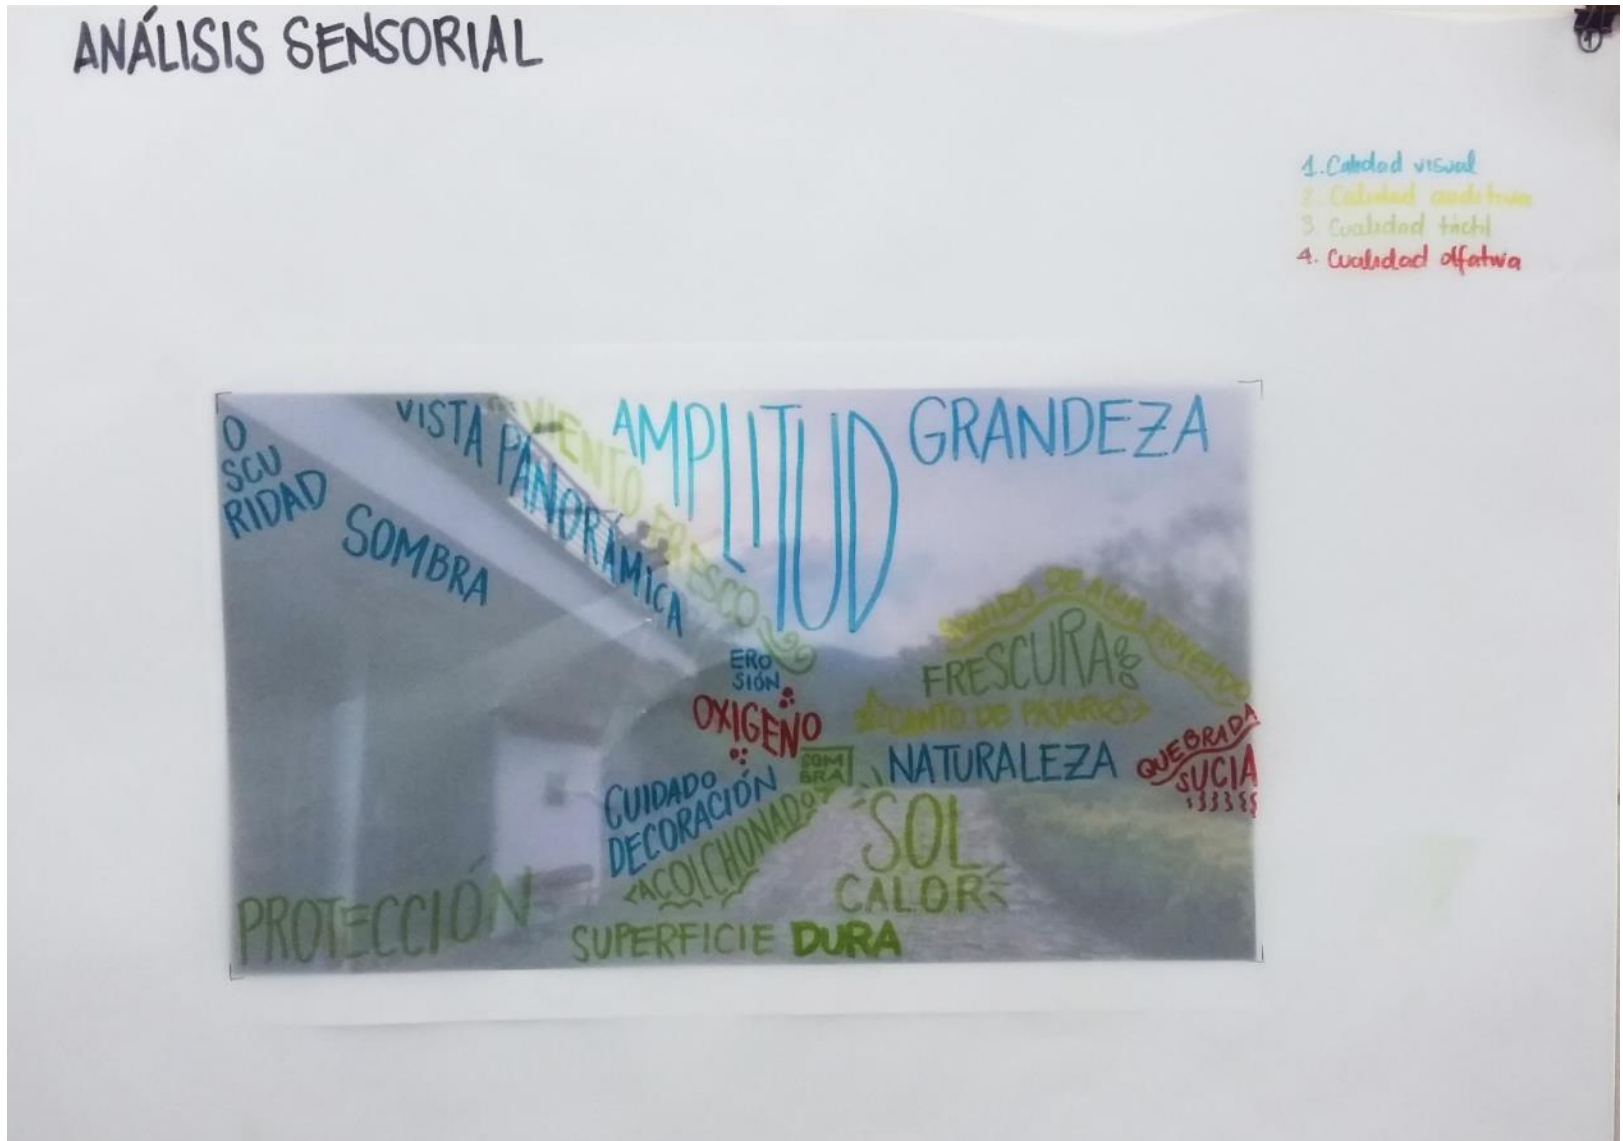 ANÁLISIS SENSORIAL
1
1. Calidad visual
2. Calidad auditiva
3. Cualidad táctil
4. Cualidad olfativa
O
SCU
RIDAD
SOMBRA
VISTA PANORÁMICA
VIENTO FRESCO
AMPLITUD
GRANDEZA
SONIDO DE AGUA FLUYENDO
FRESCURA
CANTO DE PAJAROS
ERO
SIÓN
OXIGENO
NATURALEZA
QUEBRADA
SUCIA
SOM
BRA
CUIDADO
DECORACIÓN
ACOLCHONADO
SOL
CALOR
PROTECCIÓN
SUPERFICIE DURA